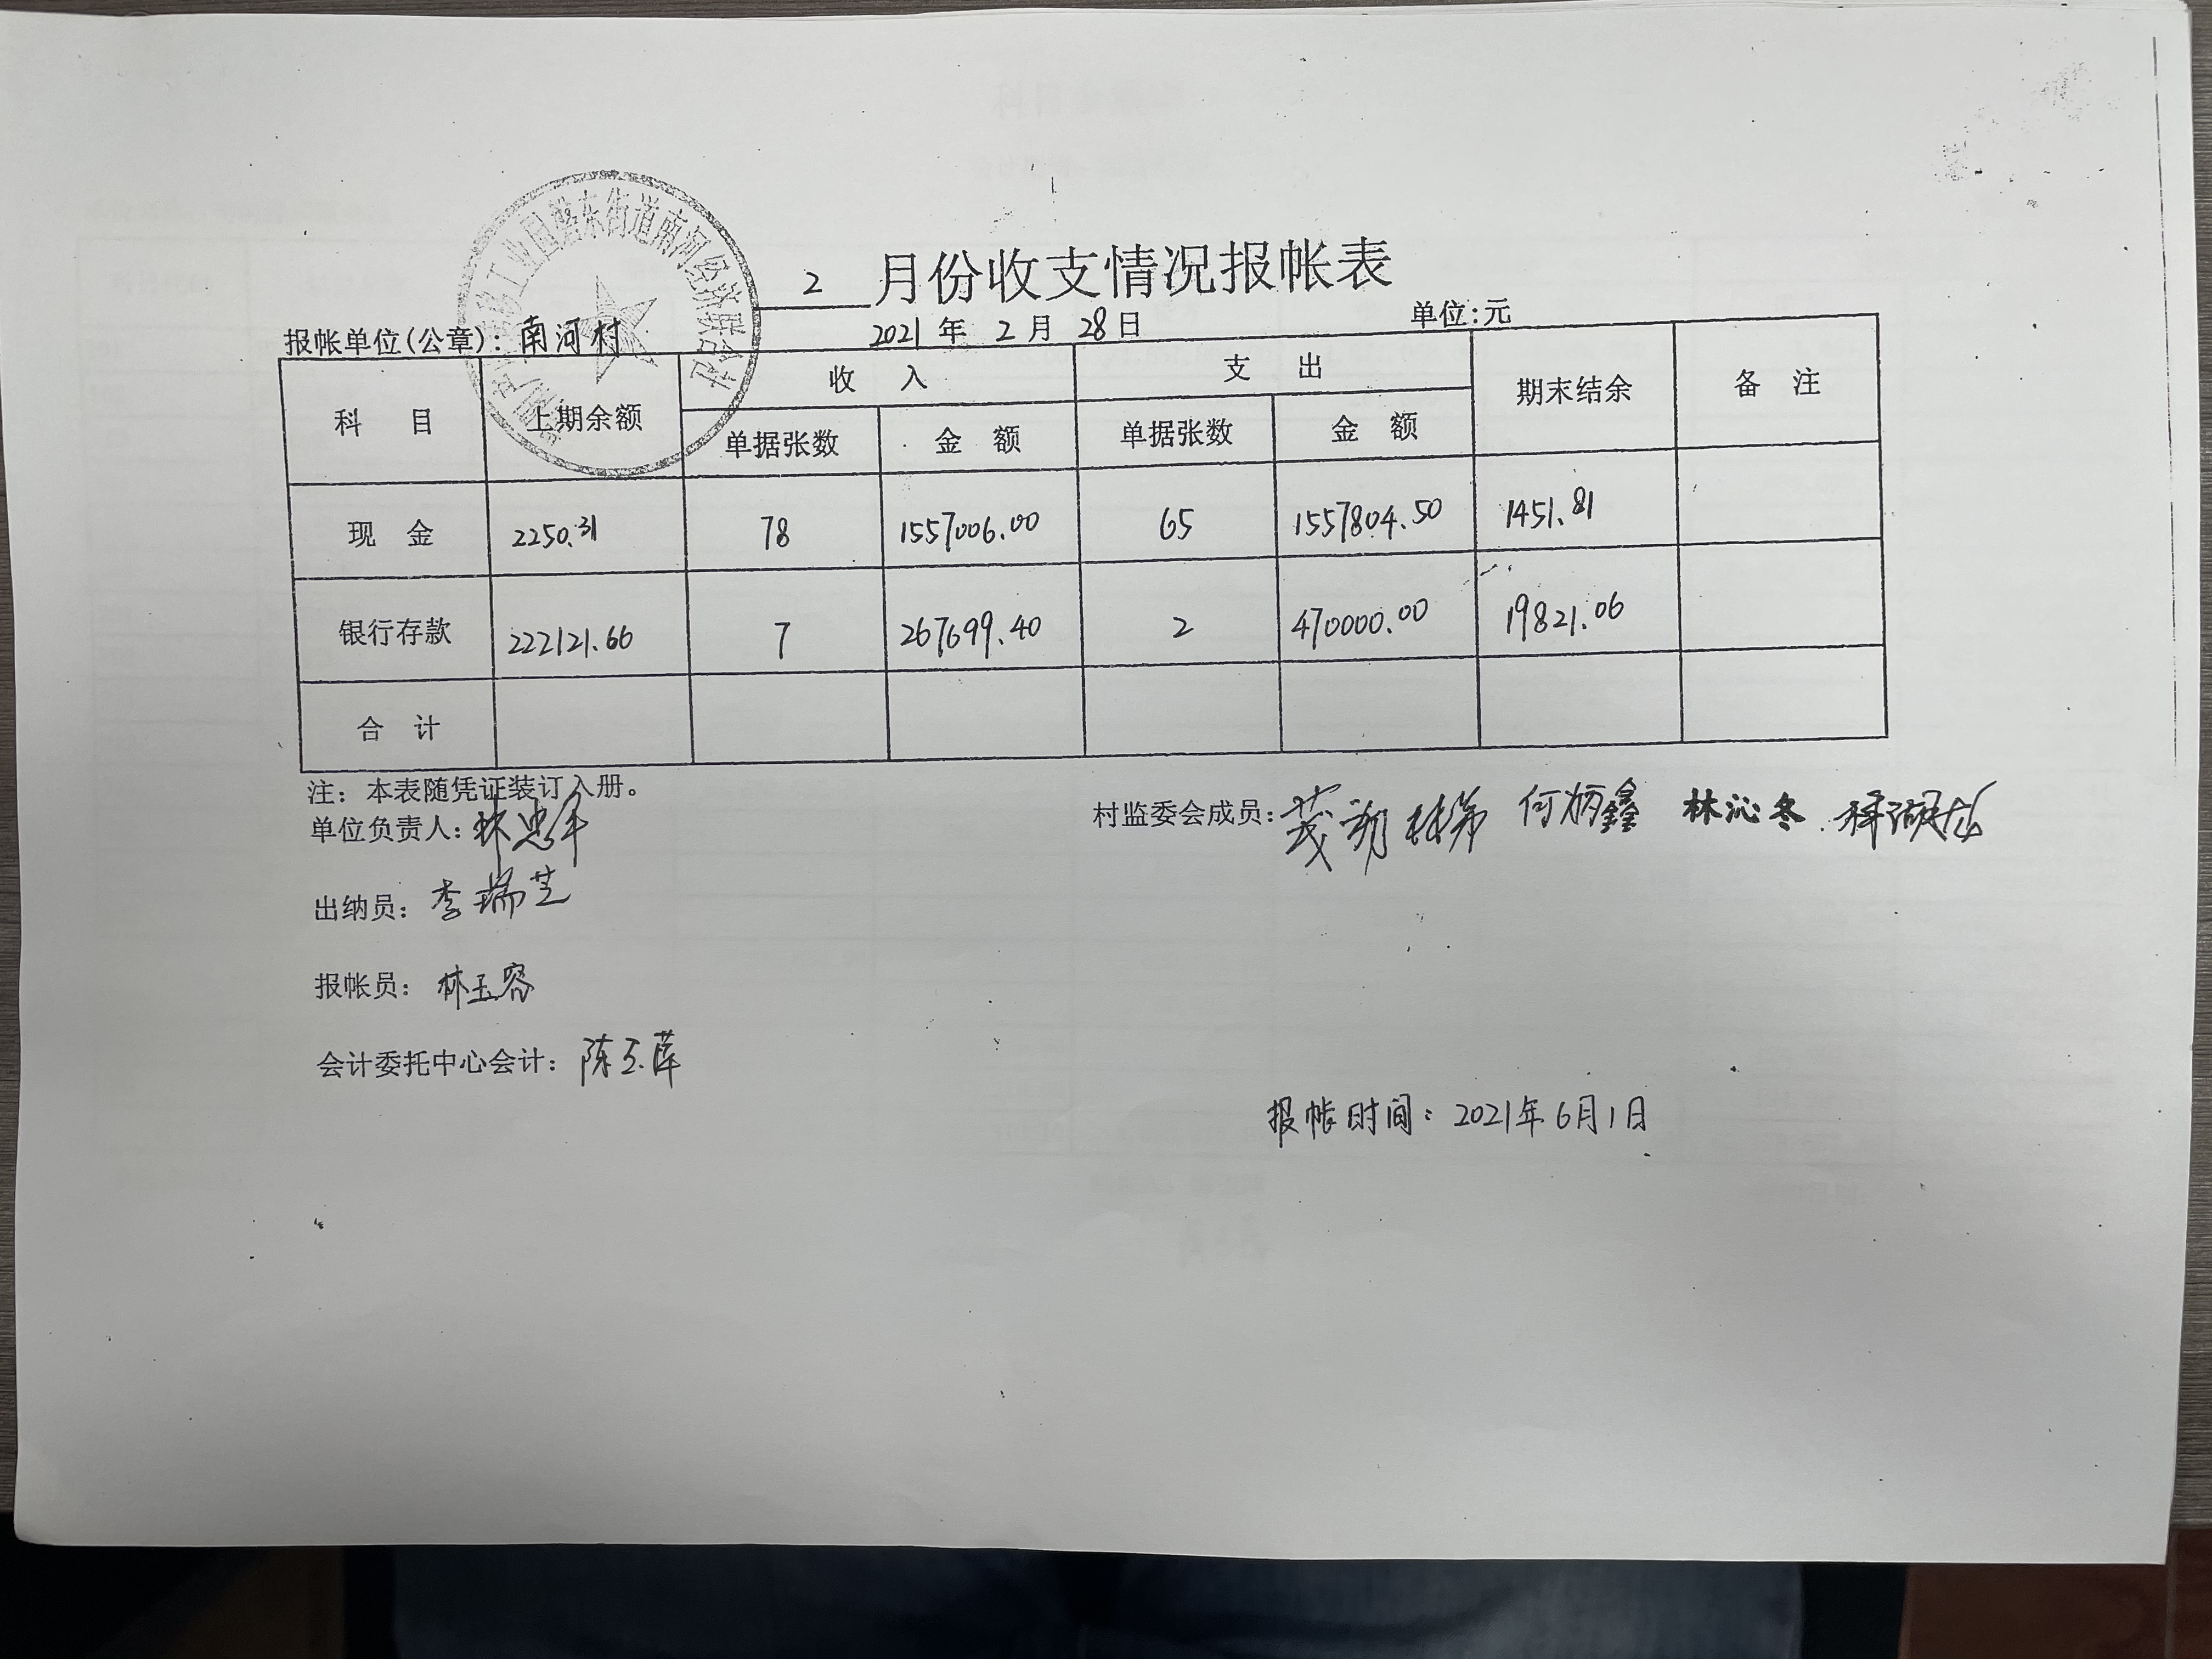 2 月份收支情况报帐表
报帐单位(公章): 南河村 2021 年 2 月 28 日 单位:元
工业园磐东街道南河经济联合社
科 目 上期余额 收 入 支 出 期末结余 备 注
单据张数 金 额 单据张数 金 额
现 金 2250.31 78 1557006.00 65 1557804.50 1451.81
银行存款 222121.66 7 267699.40 2 470000.00 19821.06
合 计
注: 本表随凭证装订入册。
单位负责人: 林忠 村监委会成员: 何炳鑫 林沁冬
出纳员: 李瑞芝
报帐员: 林玉容
会计委托中心会计: 陈玉萍
报帐时间: 2021年6月1日